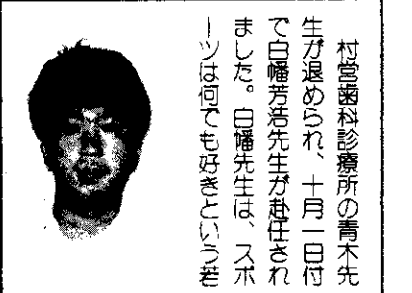 村営歯科診療所の青木先
生が退められ、十月一日付
で白幡芳浩先生が赴任され
ました。白幡先生は、スポ
ーツは何でも好きという若